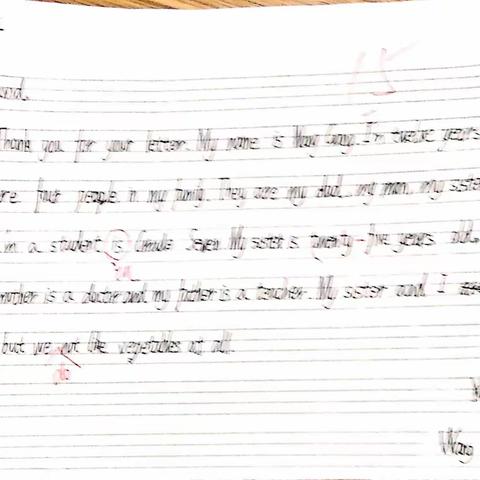 15
Thank you for your letter. My name is Wang I'm twelve years
four people in my family. They are my dad, my mom, my sister
I'm a student is Grade Seven My sister is twenty-five years old.
in
mother is a doctor and my father is a teacher. My sister and I
but we not like vegetables at all.
do
Wang